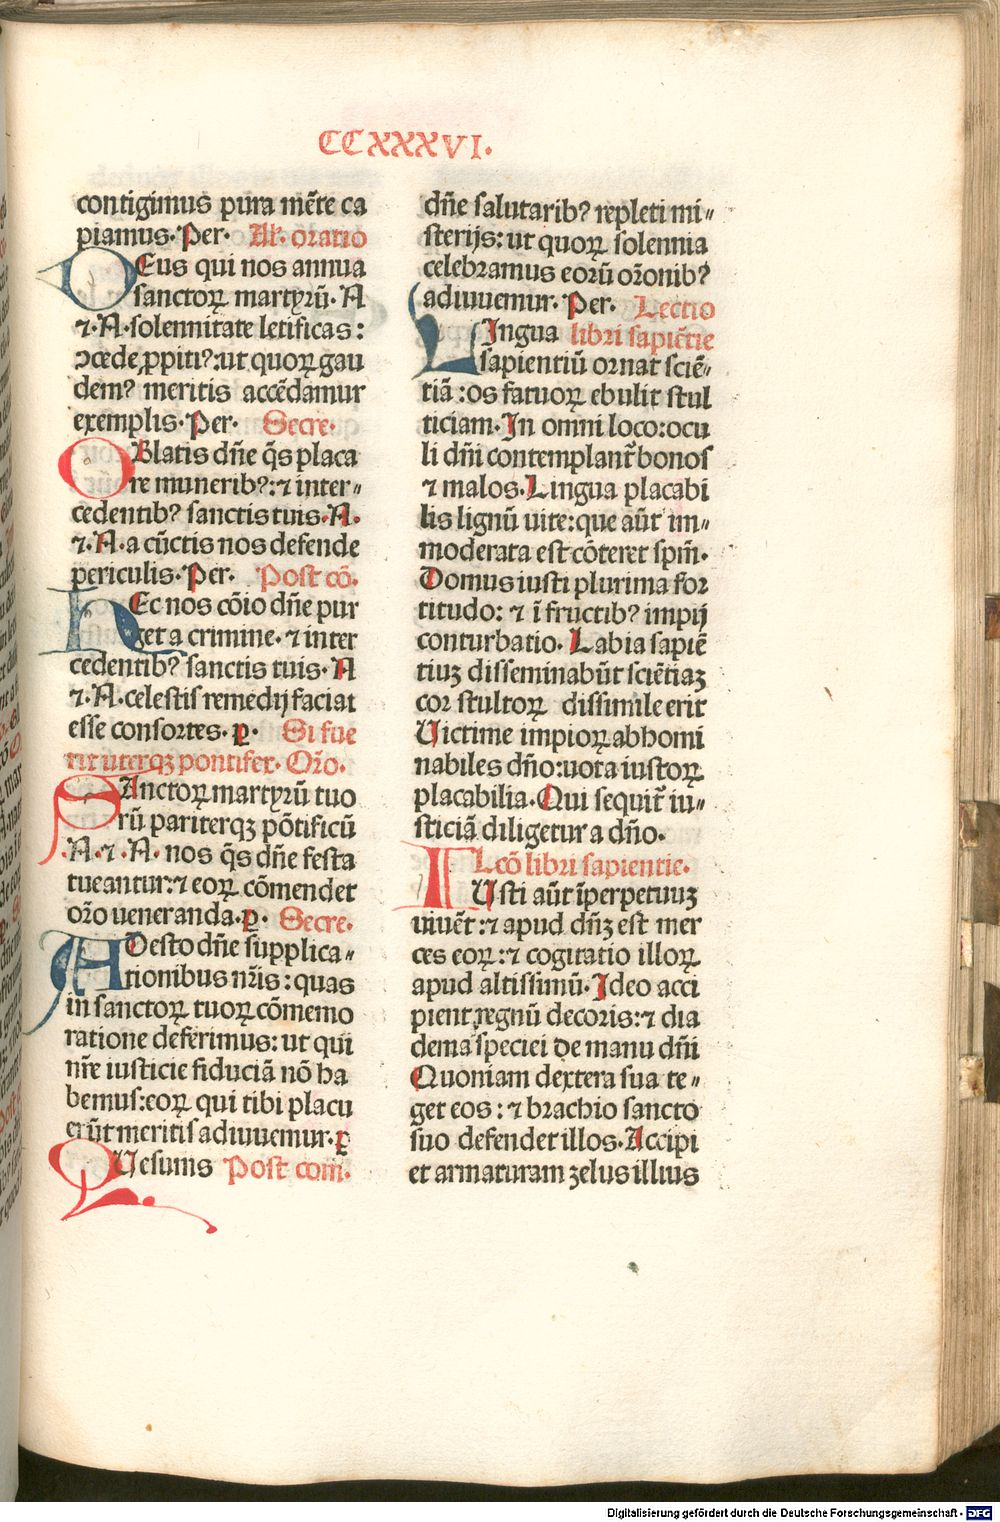 CCXXXVI.
contigimus pura mẽte ca
piamus. Per. Al. oratio
DEus qui nos annua
sanctoꝝ martyrũ. N
⁊. N. solennitate letificas:
ↄcede ꝓpitiꝰ: ut quoꝝ gau
demꝰ meritis accẽdamur
exemplis. Per. Secre.
OBlatis dñe q̃s placa
re muneribꝰ: ⁊ inter„
cedentibꝰ sanctis tuis. N.
⁊. N. a cũctis nos defende
periculis. Per. Post cõ.
HEc nos cõio dñe pur
get a crimine. ⁊ inter
cedentibꝰ sanctis tuis. N
⁊. N. celestis remedij faciat
esse consortes. ꝑ. Si fue
rit uterqꝫ pontifex. Oro.
SAnctoꝝ martyrũ tuo
rũ pariterqꝫ põtificũ
.N. ⁊. N. nos q̃s dñe festa
tueantur: ⁊ eoꝝ cõmendet
oro ueneranda. ꝑ. Secre.
ADesto dñe supplica„
tionibus nr̃is: quas
in sanctoꝝ tuoꝝ cõmemo
ratione deferimus: ut qui
nr̃e iusticie fiduciã nõ ha
bemus: eoꝝ qui tibi placu
erũt meritis adiuuemur. ꝑ
QUesums Post com.
dñe salutaribꝰ repleti mi„
sterijs: ut quoꝝ solennia
celebramus eorũ orõnibꝰ
adiuuemur. Per. Lectio
LIngua libri sapiẽtie
sapientiũ ornat sciẽ„
tiã: os fatuoꝝ ebulit stul
ticiam. In omni loco: ocu
li dñi contemplant̃ bonos
⁊ malos. Lingua placabi
lis lignũ uite: que aũt im„
moderata est cõteret spm̃.
Domus iusti plurima for
titudo: ⁊ ĩ fructibꝰ impij
conturbatio. Labia sapiẽ
tiuꝫ disseminabũt sciẽtiaꝫ
cor stultoꝝ dissimile erit
Uictime impioꝝ abhomi
nabiles dño: uota iustoꝝ
placabilia. Qui sequit̃ iu„
sticiã diligetur a dño.
Lcõ libri sapientie.
IUsti aũt ĩperpetuuꝫ
uiuẽt: ⁊ apud dñꝫ est mer
ces eoꝝ: ⁊ cogitatio illoꝝ
apud altissimũ. Ideo acci
pient regnũ decoris: ⁊ dia
dema speciei de manu dñi
Quoniam dextera sua te„
get eos: ⁊ brachio sancto
suo defendet illos. Accipi
et armaturam zelus illius
Digitalisierung gefördert durch die Deutsche Forschungsgemeinschaft - DFG